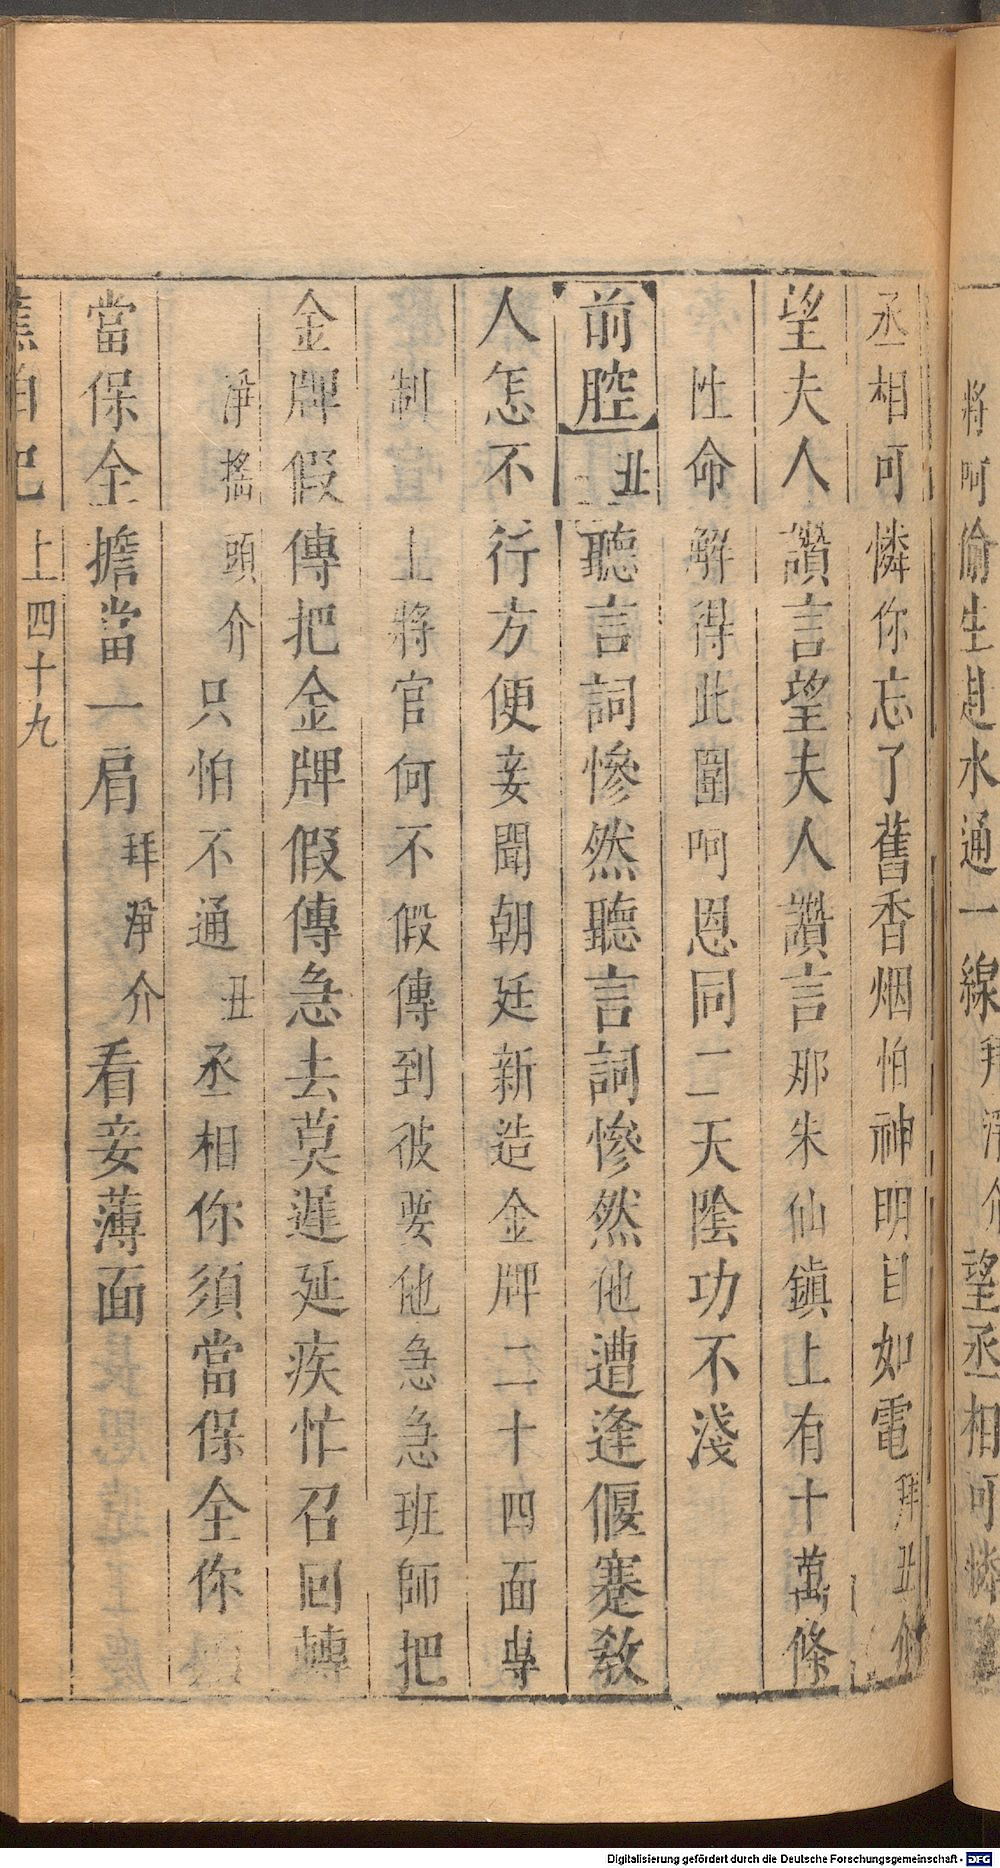 將呵偷生赴水通一線拜淨介望丞相可憐
丞相可憐你忘了舊香烟怕神明目如電拜丑介
望夫人讚言望夫人讚言那朱仙鎮上有十萬條
性命解得此圍呵恩同二天陰功不淺
前腔丑聽言詞慘然聽言詞慘然他遭逢偃蹇敎
人怎不行方便妾聞朝廷新造金牌二十四面專
制宣上將官何不假傳到彼要他急急班師把
金牌假傳把金牌假傳急去莫遲延疾忙召回轉
淨搖頭介只怕不通丑丞相你須當保全你須
當保全擔當一肩拜淨介看妾薄面
上四十九
Digitalisierung gefördert durch die Deutsche Forschungsgemeinschaft - DFG